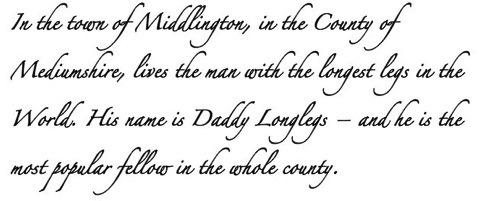 In the town of Middlington, in the County of
Mediumshire, lives the man with the longest legs in the
World. His name is Daddy Longlegs – and he is the
most popular fellow in the whole county.